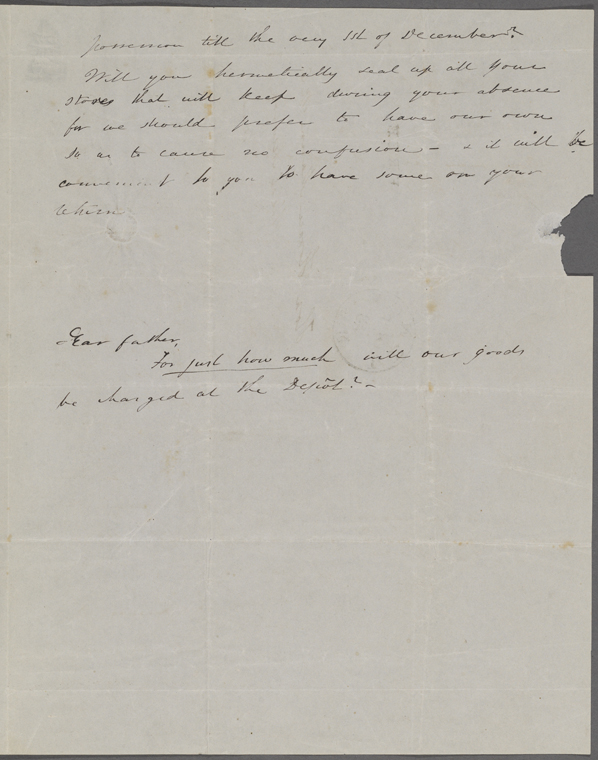 possession till the very 1st of December?
Will you hermetically seal up all your
stores that will keep during your absence
for we should prefer to have our own
so as to cause no confusion - & it will be
convenient to you to have some on your
return
Dear father,
For just how much will our goods
be charged at the Depôt? -